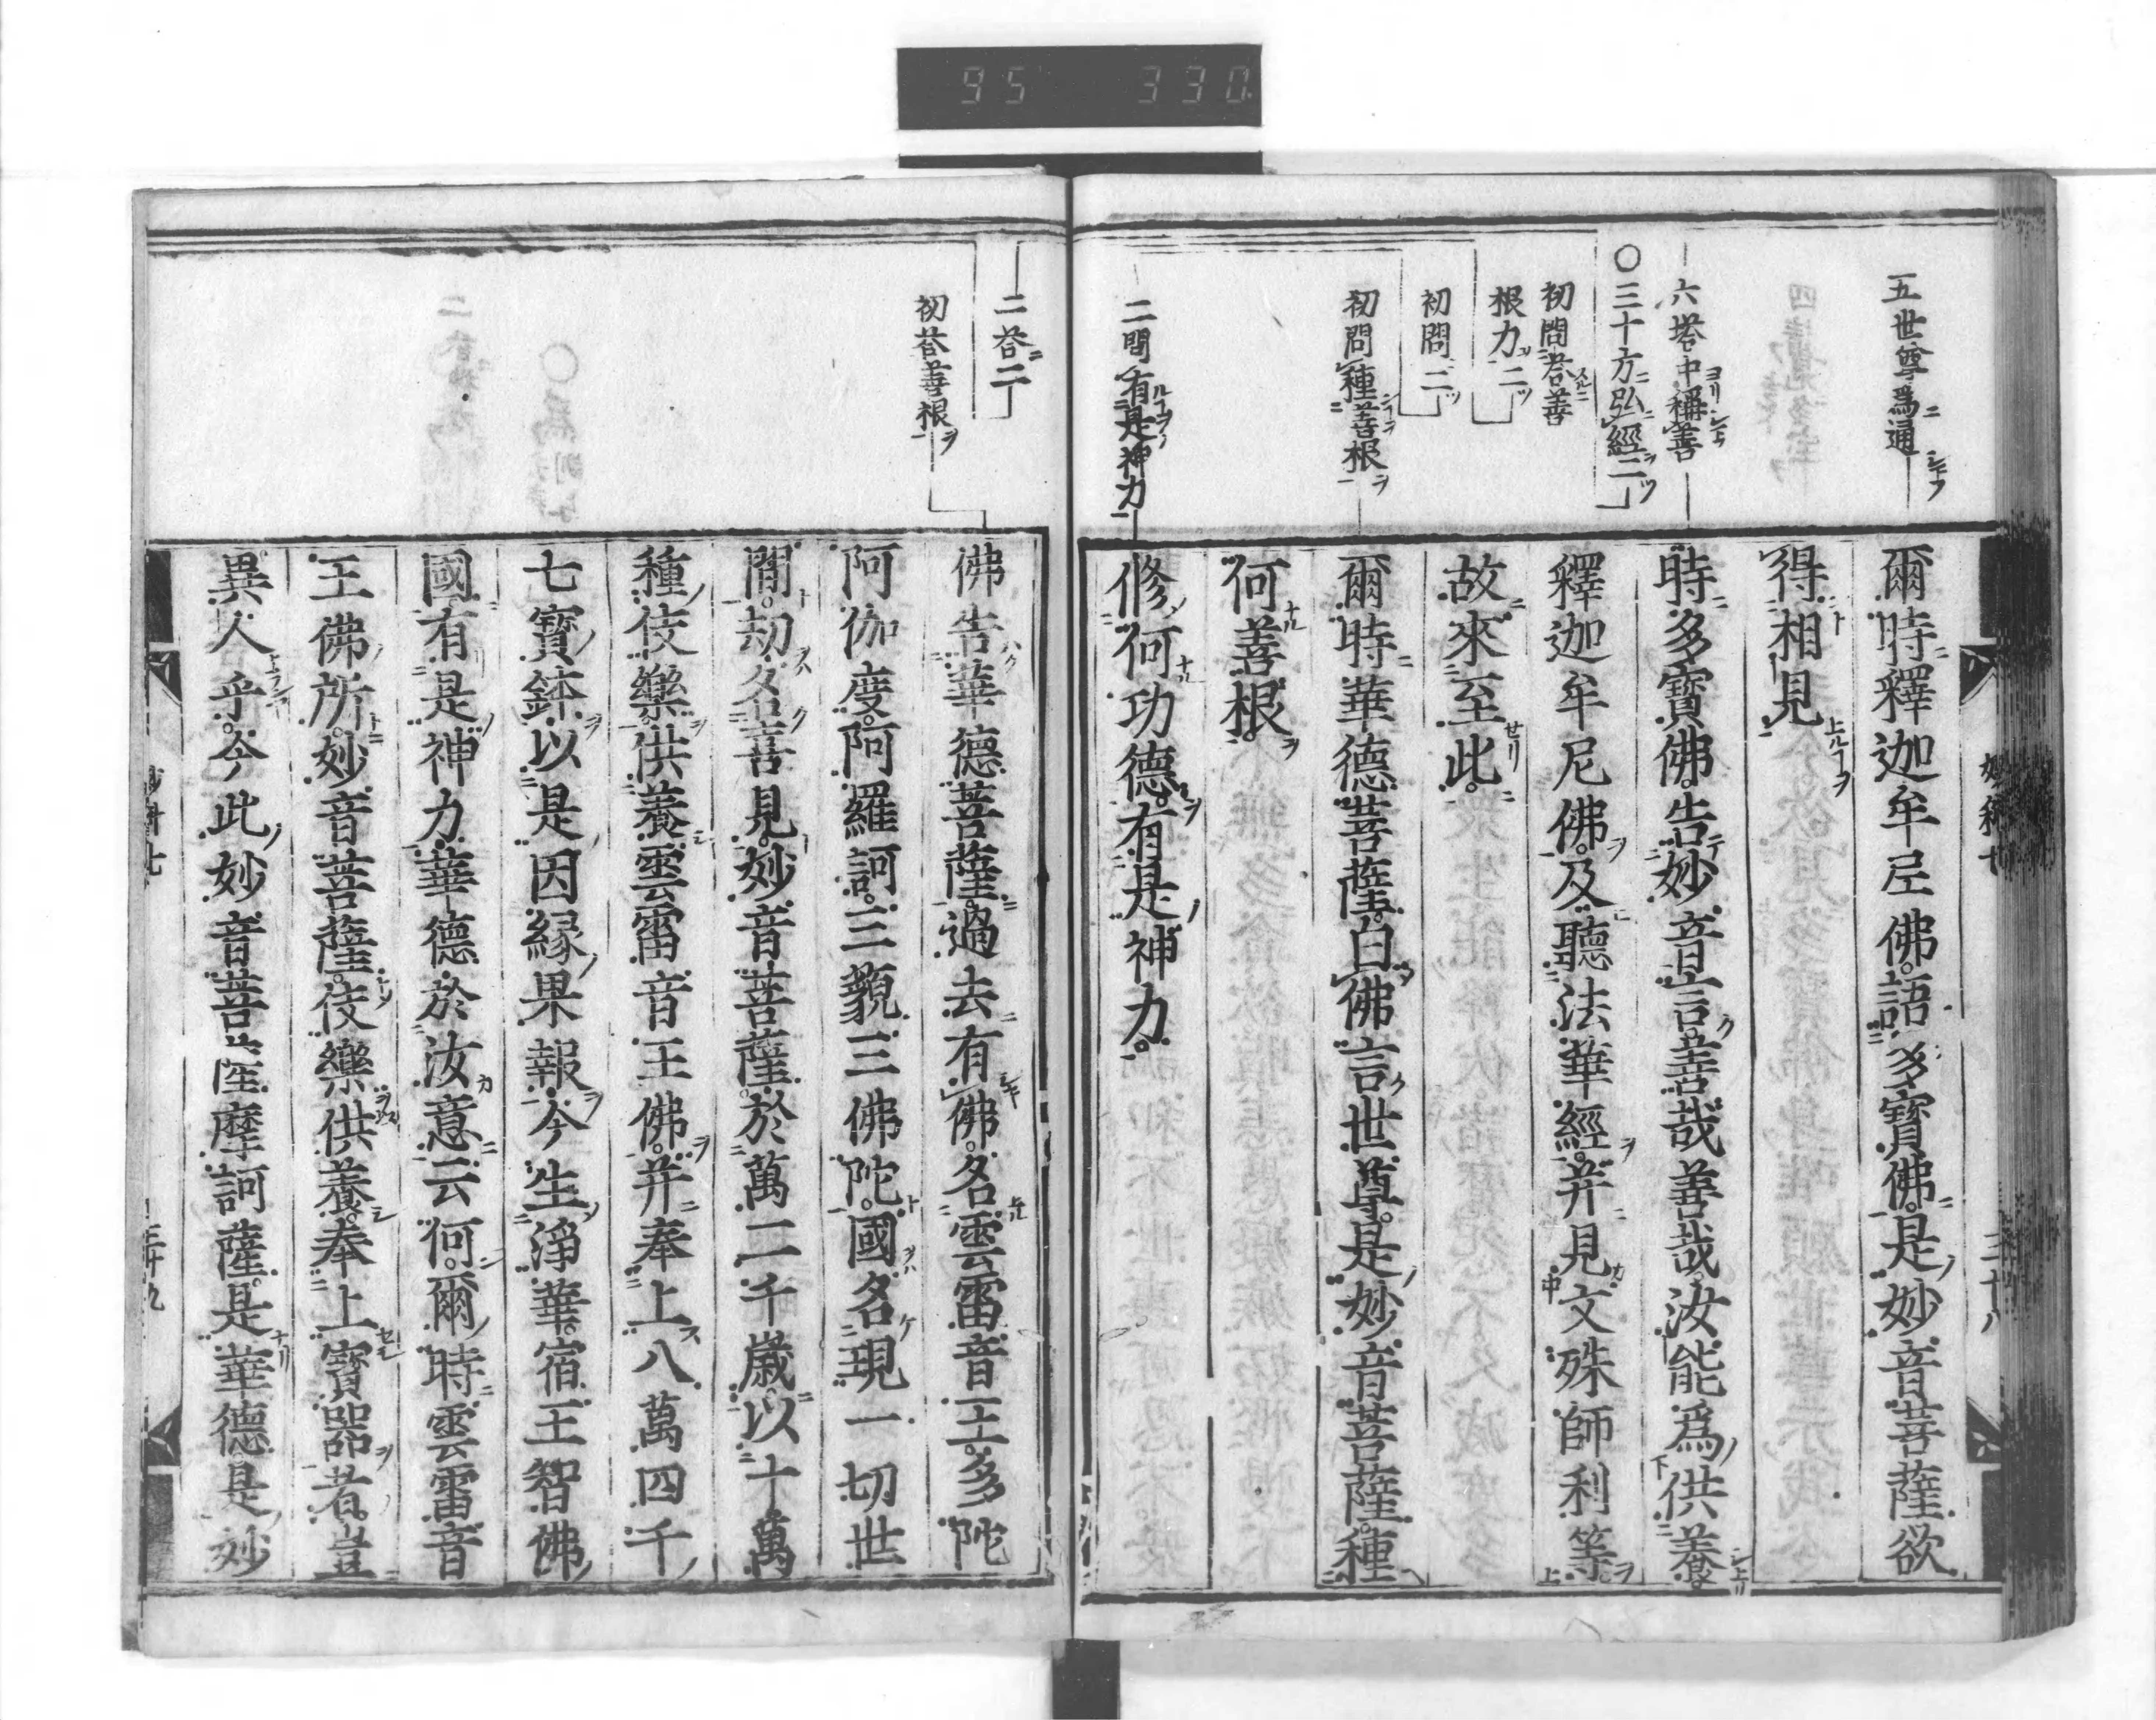 95 330
五世尊爲通
六塔中稱善
〇三十方弘經二
初問荅善
根力二
初問二
初問種善根
二問有是神力
爾時釋迦牟尼佛。語多寶佛。是妙音菩薩欲
得相見
時多寶佛。告妙音言善哉善哉。汝能爲供養
釋迦牟尼佛。及聽法華經。并見文殊師利等
故來至此。
爾時華德菩薩。白佛言世尊。是妙音菩薩。種
何善根。
修何功德。有是神力。
二荅二
初荅善根
佛告華德菩薩。過去有佛。名雲雷音王。多陀
阿伽度。阿羅訶。三藐三佛陀。國名現一切世
間。劫名喜見。妙音菩薩。於萬二千歲。以十萬
種伎樂。供養雲雷音王佛。并奉上八萬四千
七寶鉢。以是因縁果報。今生淨華宿王智佛
國。有是神力。華德。於汝意云何。爾時雲雷音
王佛所。妙音菩薩。伎樂供養。奉上寶器者。豈
異人乎。今此妙音菩薩摩訶薩。是華德。是妙